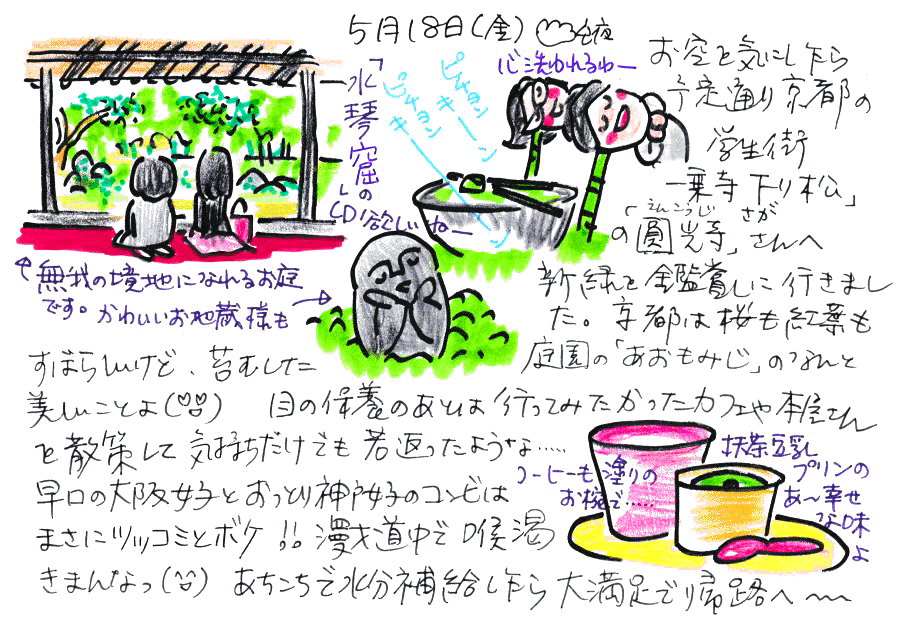 5月18日(金)
お空を気にしたら
予定通り京都の
学生街
一乗寺下り松」
さが
えんこうじ
の「圓光寺」さんへ
新緑を鑑賞しに行きまし
た。京都は桜も紅葉も
すばらしいけど、苔むした
庭園の「あおもみじ」のなんと
美しいことよ 目の保養のあとは行ってみたかったカフェや本屋さん
を散策して気持ちだけでも若返ったような……
早口の大阪女子とおっとり神戸女子のコンビは
まさにツッコミとボケ!!漫才道中で喉渇
きまんなっ あちこちで水分補給したら大満足で帰路へ〜〜
「水琴窟」の
CD欲しいねー
ピチョン
キーン
ピチョン
キーン
心洗われるわー
無我の境地になれるお庭
です。かわいいお地蔵様も
コーヒーも塗りの
お椀で……
抹茶豆乳
プリンの
あ〜幸せ
な味
よ